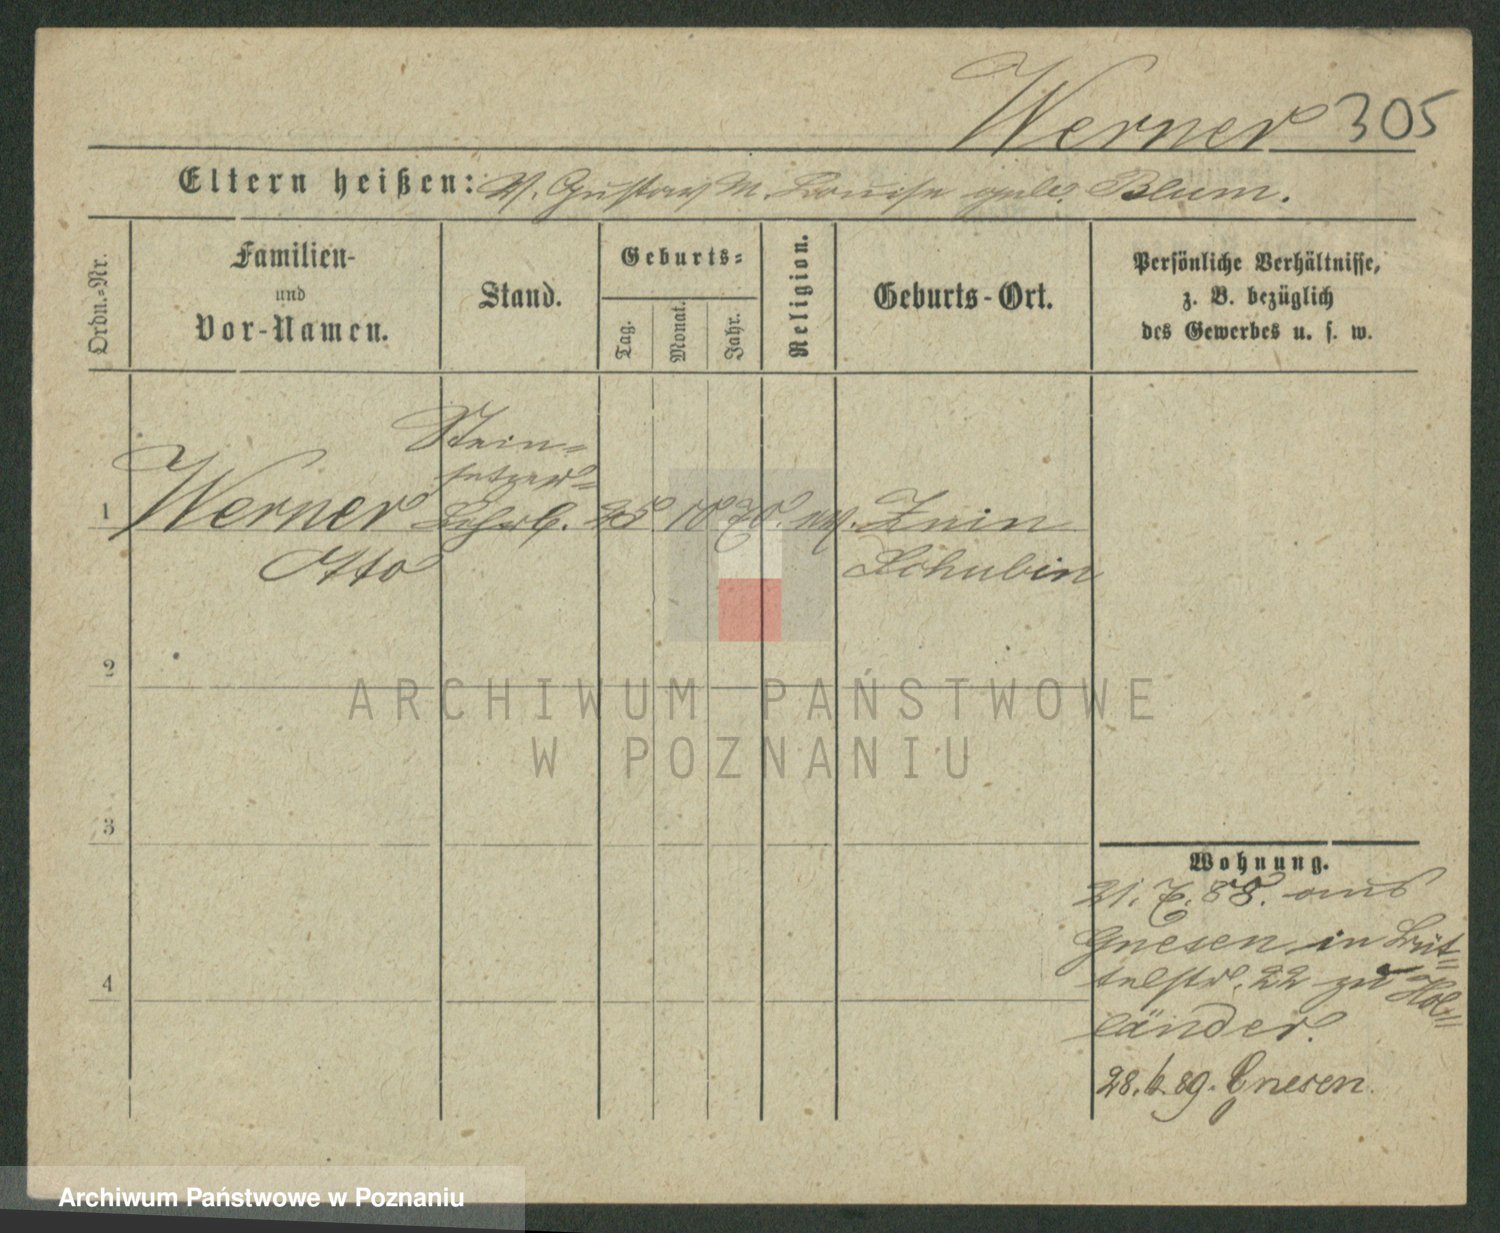 Werner 305
Eltern heißen: V. Gustav M. Louise geb. Blum.
Ordn.-Nr.
Familien-
und
Vor-Namen.
Stand.
Geburts-
Tag.
Monat.
Jahr.
Religion.
Geburts-Ort.
Persönliche Verhältnisse,
z. B. bezüglich
des Gewerbes u. s. w.
Stein-
setzer-
1 Werner Lehrl. 25 10 70. ev. Znin
Otto Schubin
2
ARCHIWUM PAŃSTWOWE
W POZNANIU
3
Wohnung.
21. 7. 88. aus
Gnesen in Büt-
telstr. 22 zu Hol-
länder.
4
28. 6. 89. Gnesen.
Archiwum Państwowe w Poznaniu